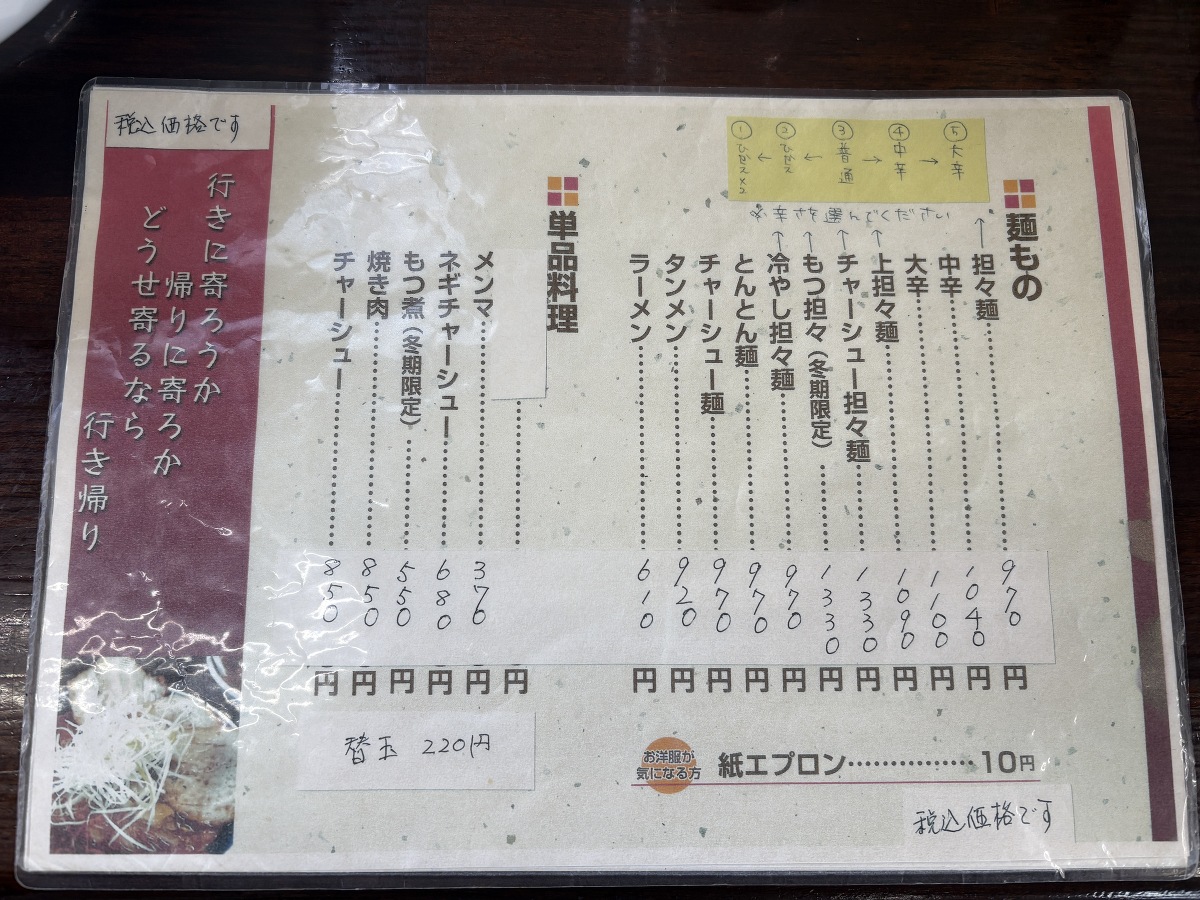 麺もの
⑤大辛
→
④中辛
→
③普通
←
②ひかえ
←
①ひかえ×2
辛さを選んでください
担々麺……970円
中辛……1040円
大辛……1100円
上担々麺……1090円
チャーシュー担々麺……1330円
もつ担々(冬期限定)……1330円
冷やし担々麺……970円
とんとん麺……970円
チャーシュー麺……970円
タンメン……920円
ラーメン……610円
お洋服が
気になる方
紙エプロン……10円
税込価格です
単品料理
……円
メンマ……370円
ネギチャーシュー……680円
もつ煮(冬期限定)……550円
焼き肉……850円
チャーシュー……850円
替玉 220円
税込価格です
行きに寄ろうか
帰りに寄ろか
どうせ寄るなら
行き帰り